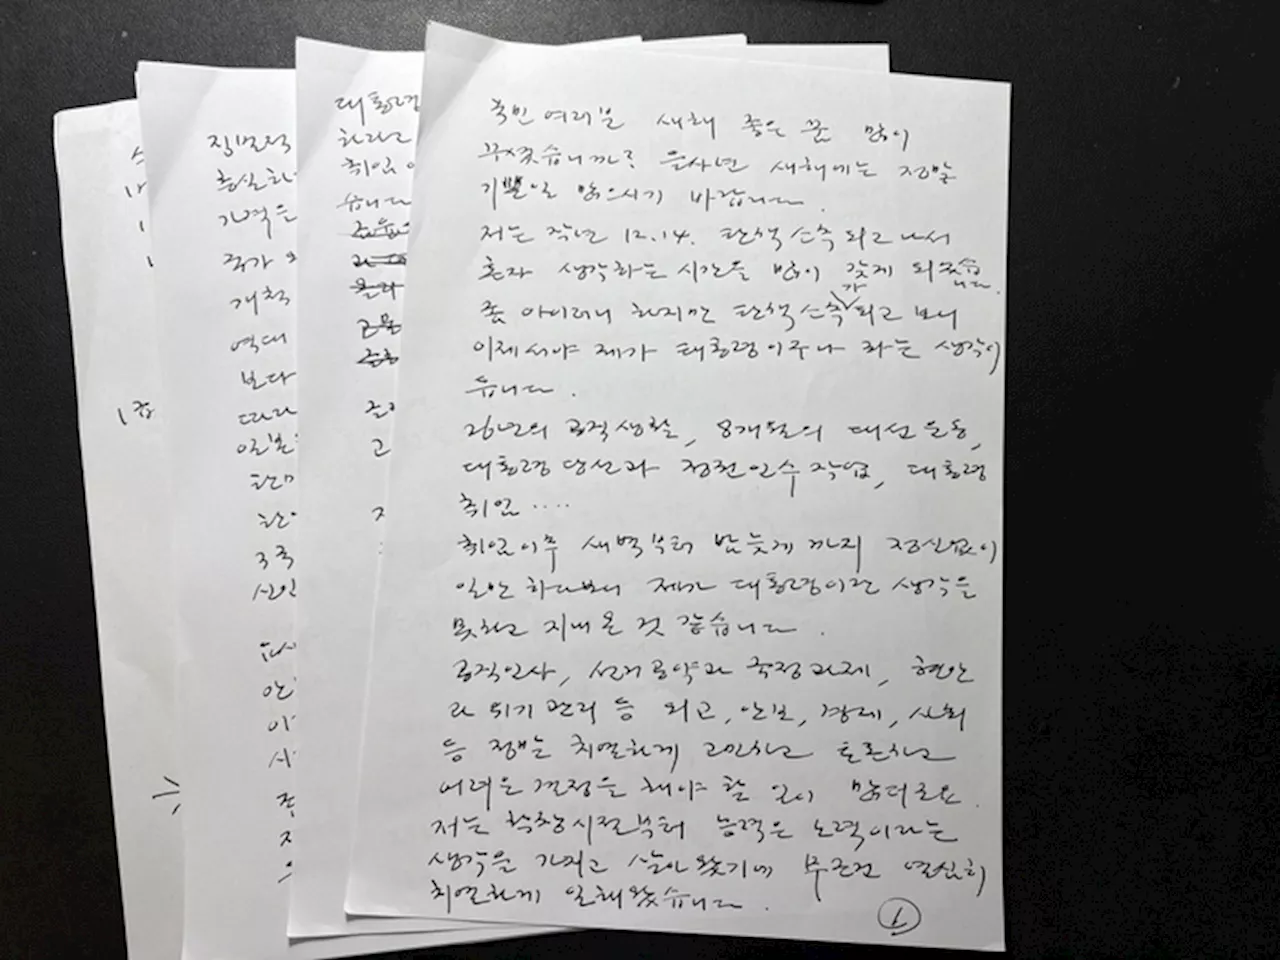 국민 여러분 새해 좋은 꿈 많이
꾸셨습니까? 을사년 새해에는 정말
기쁜일 많으시기 바랍니다.
저는 작년 12.14. 탄핵소추 되고 나서
혼자 생각하는 시간을 많이 갖게 되었습니다.
좀 아이러니 하지만 탄핵소추가 되고 보니
이제서야 제가 대통령이구나 하는 생각이
듭니다.
26년의 공직생활, 8개월의 대선 운동,
대통령 당선과 정권 인수 작업, 대통령
취임 ····
취임이후 새벽부터 밤늦게 까지 정신없이
일만 하다보니 제가 대통령이란 생각을
못하고 지내온 것 같습니다.
공직인사, 선거공약과 국정과제, 현안
과 위기 관리 등 외교, 안보, 경제, 사회
등 정말 치열하게 고민하고 토론하고
어려운 결정을 해야 할 일이 많더군요.
저는 학창시절부터 능력은 노력이라는
생각을 가지고 살아 왔기에 무조건 열심히
치열하게 일해왔습니다.
1
대통령
하라고
취임
습니다
고
직면적
충실하
가격은
국가
개척
역대
보다
따라
일본
한미
3국
1급